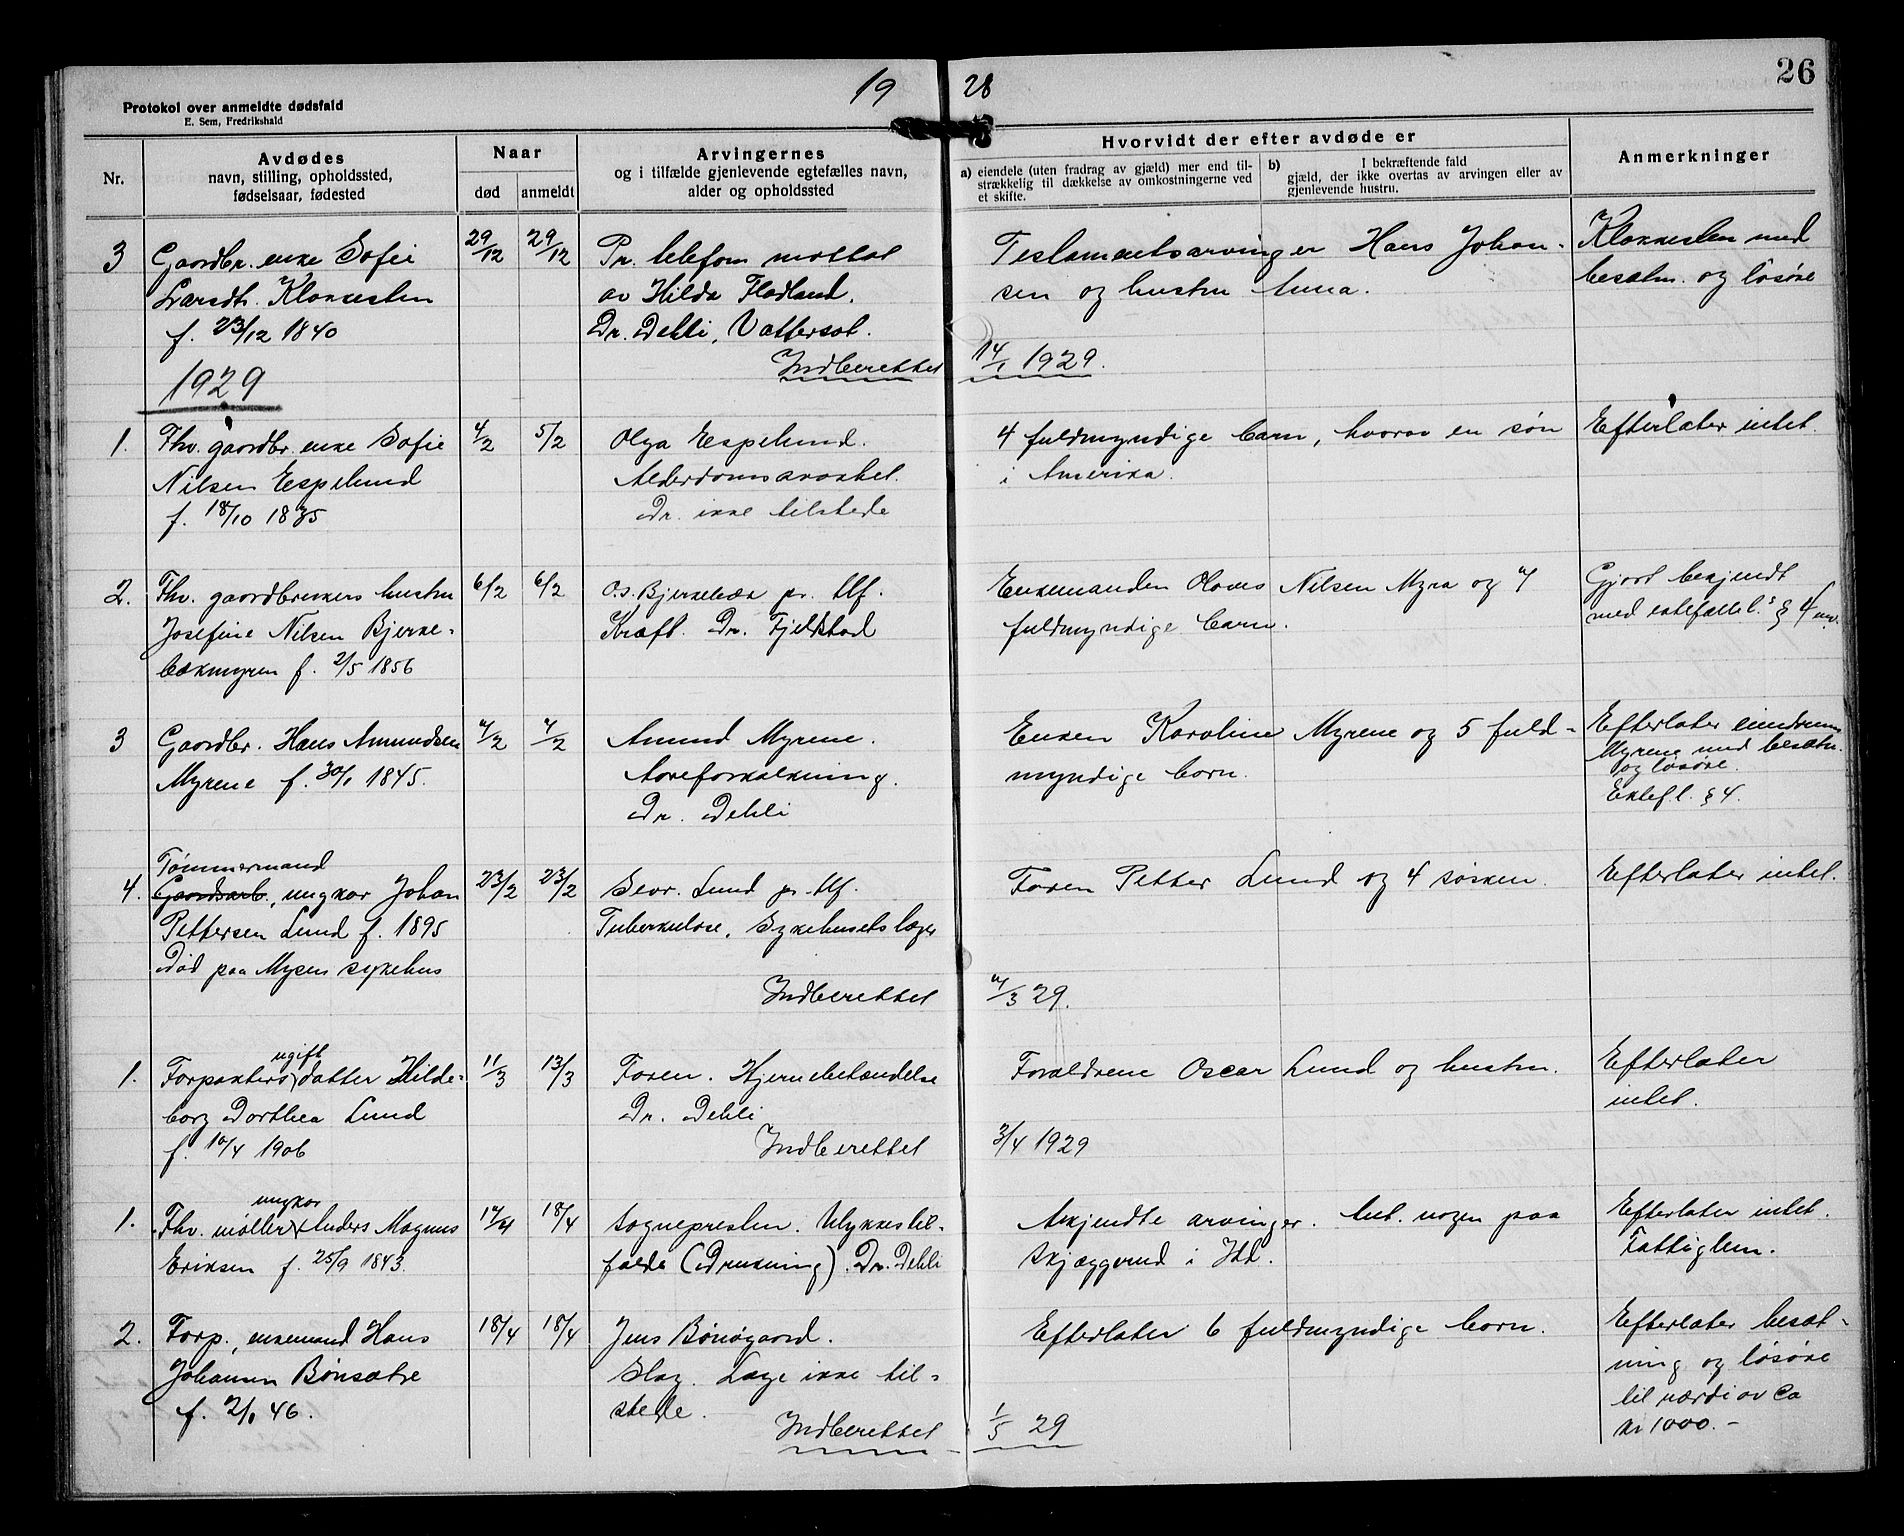 19 28
26
Protokol over anmeldte dødsfald
E. Sem, Fredrikshald
Nr.
Avdødes
navn, stilling, opholdssted,
fødselsaar, fødested
Naar
død
anmeldt
Arvingernes
og i tilfælde gjenlevende egtefælles navn,
alder og opholdssted
Hvorvidt der efter avdøde er
a) eiendele (uten fradrag av gjæld) mer end til-
strækkelig til dækkelse av omkostningerne ved
et skifte.
b) I bekræftende fald
gjæld, der ikke overtas av arvingen eller av
gjenlevende hustru.
Anmerkninger
3
Gaardbr. enke Sofie
Larsdt. Klokkesten
f. 23/12 1840
29/12
29/12
Pr. telefon mottat
av Hilda Flodland.
Dr. Dehli, Vattersot.
Testamentsarvinger Hans Johan-
sen og hustru Anna.
Klokkesten med
besætn. og løsøre
Indberettet 14/1 1929.
1929
1.
Fhv. gaardbr. enke Sofie
Nilsen Espelund
f. 18/10 1835
4/2
5/2
Olga Espelund.
Alderdomsavkræft.
Dr. ikke tilstede
4 fuldmyndige barn, hvorav en søn
i Amerika.
Efterlater intet.
2.
Fhv. gaardbrukers hustru
Josefine Nilsen Bjerke-
bækmyren f. 2/5 1856
6/2
6/2
O.S. Bjerkebæk pr. tlf.
Kræft. Dr. Fjelstad
Enkemanden Olaves Nilsen Myra og 4
fuldmyndige barn.
Gjort bekjendt
med ektefællel.s § 4
3
Gaardbr. Hans Amundsen
Myrene f. 30/1 1845.
4/2
4/2
Amund Myrene.
Aareforkalkning.
Dr. Dehli
Enken Karoline Myrene og 5 fuld-
myndige barn.
Efterlater eiendommen
Myrene med besætn.
og løsøre.
Ektef.l. § 4.
4.
Tømmermand
Gaardsarb., ungkar Johan
Pettersen Lund f. 1895
Død paa Mysen sykehus
23/2
23/2
Lund pr. tlf.
Tuberkulose. Sykehusets læge
Faren Petter Lund og 4 søsken.
Efterlater intet.
Indberettet 4/3 29.
1.
ugift
Forpakters datter Hilde-
borg Dorthea Lund
f. 10/4 1906
11/3
13/3
Faren. Hjernebetændelse
Dr. Dehli
Forældrene Oscar Lund og hustru.
Efterlater
intet.
Indberettet 3/4 1929
1.
ungkar
Fhv. møller Anders Magnus
Eriksen f. 25/9 1843.
17/4
18/4
Sognepresten. Ulykkestil-
fælde (Drukning). Dr. Dehli
Ukjendte arvinger. Ant. nogen paa
Skjæggerud i Idd.
Efterlater intet.
Fattiglem.
2.
Forp., enkemand Hans
Johansen Bønsætre
f. 2/1 46.
18/4
18/4
Jens Bønøgaard.
Slag. Læge ikke til-
stede.
Efterlater 6 fuldmyndige barn.
Efterlater besæt-
ning og løsøre
til værdi av ca
kr 1000.-
Indberettet 1/5 29